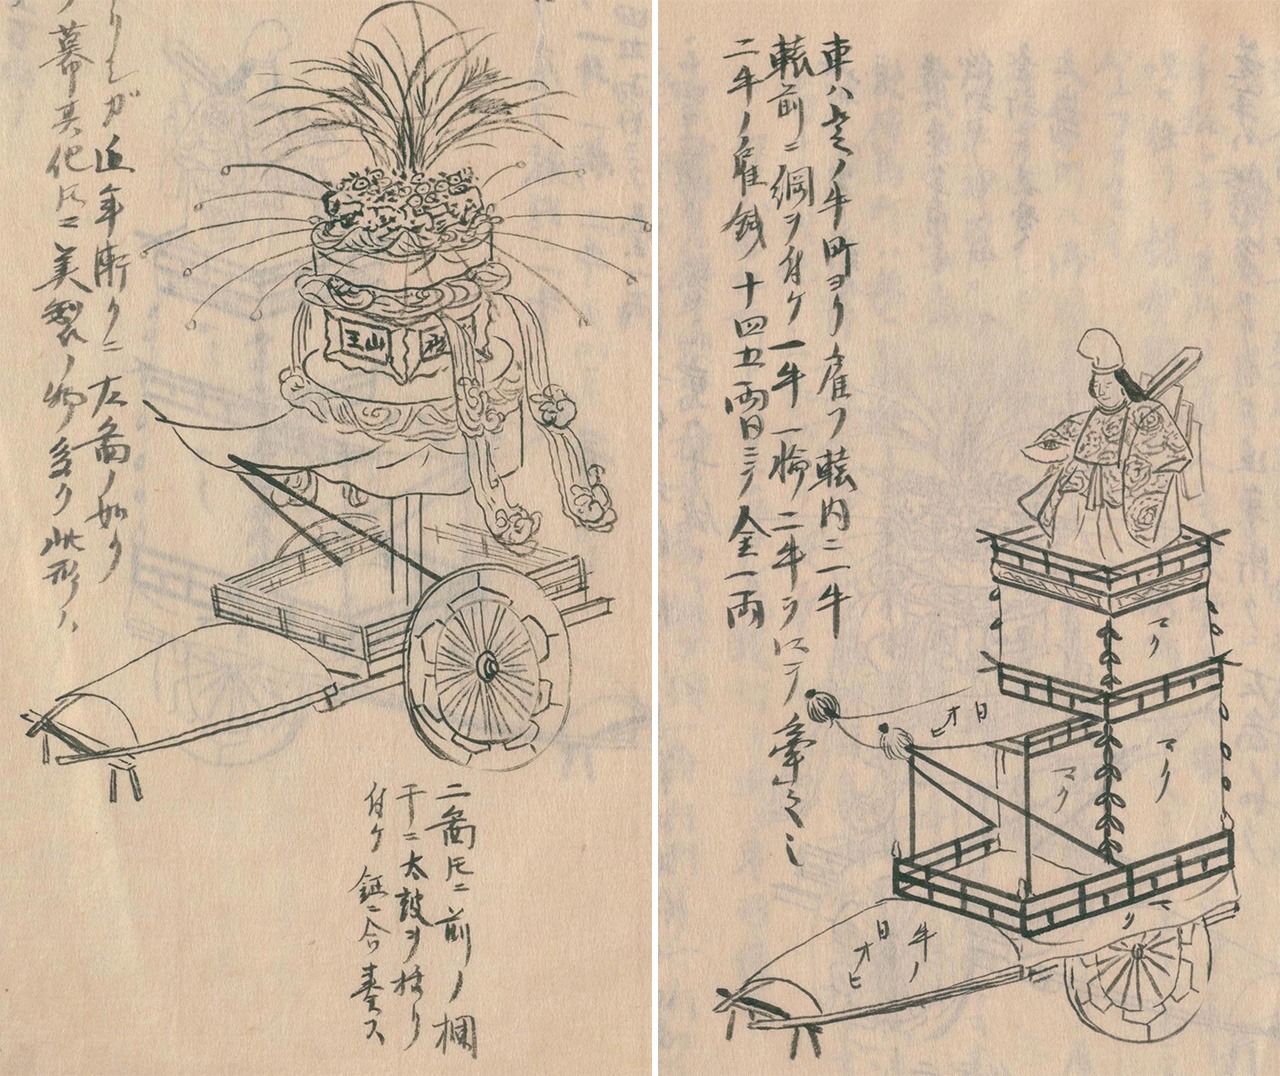 車ハ芝ノ牛町ヨリ雇フ轅内ニ一牛
轅前ニ綱ヲ付ケ一牛一輛二牛ヲ以テ牽之
二牛ノ雇銭十四五両日ニテ金一両
マク
マク
マク
日オヒ
マク
牛ノ
日オヒ
りしガ近年漸クニ左図ノ如ク
ノ幕其他𪜈ニ美製ノ物多ク此形ハ
山王
二図𪜈ニ前ノ欄
干ニ太鼓ヲ括リ
付ケ鉦ニ合奏ス